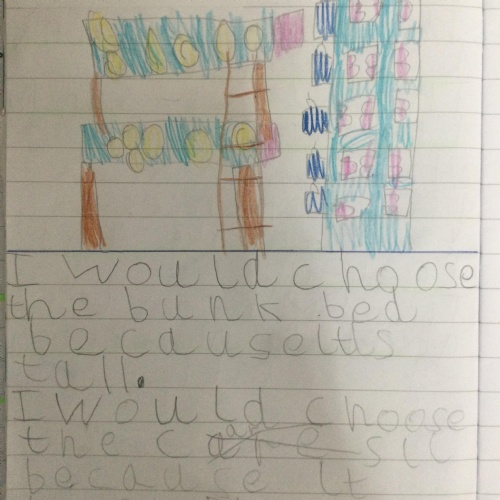 I would choose
the bunk bed
becauseits
tall.
I would choose
the
because it